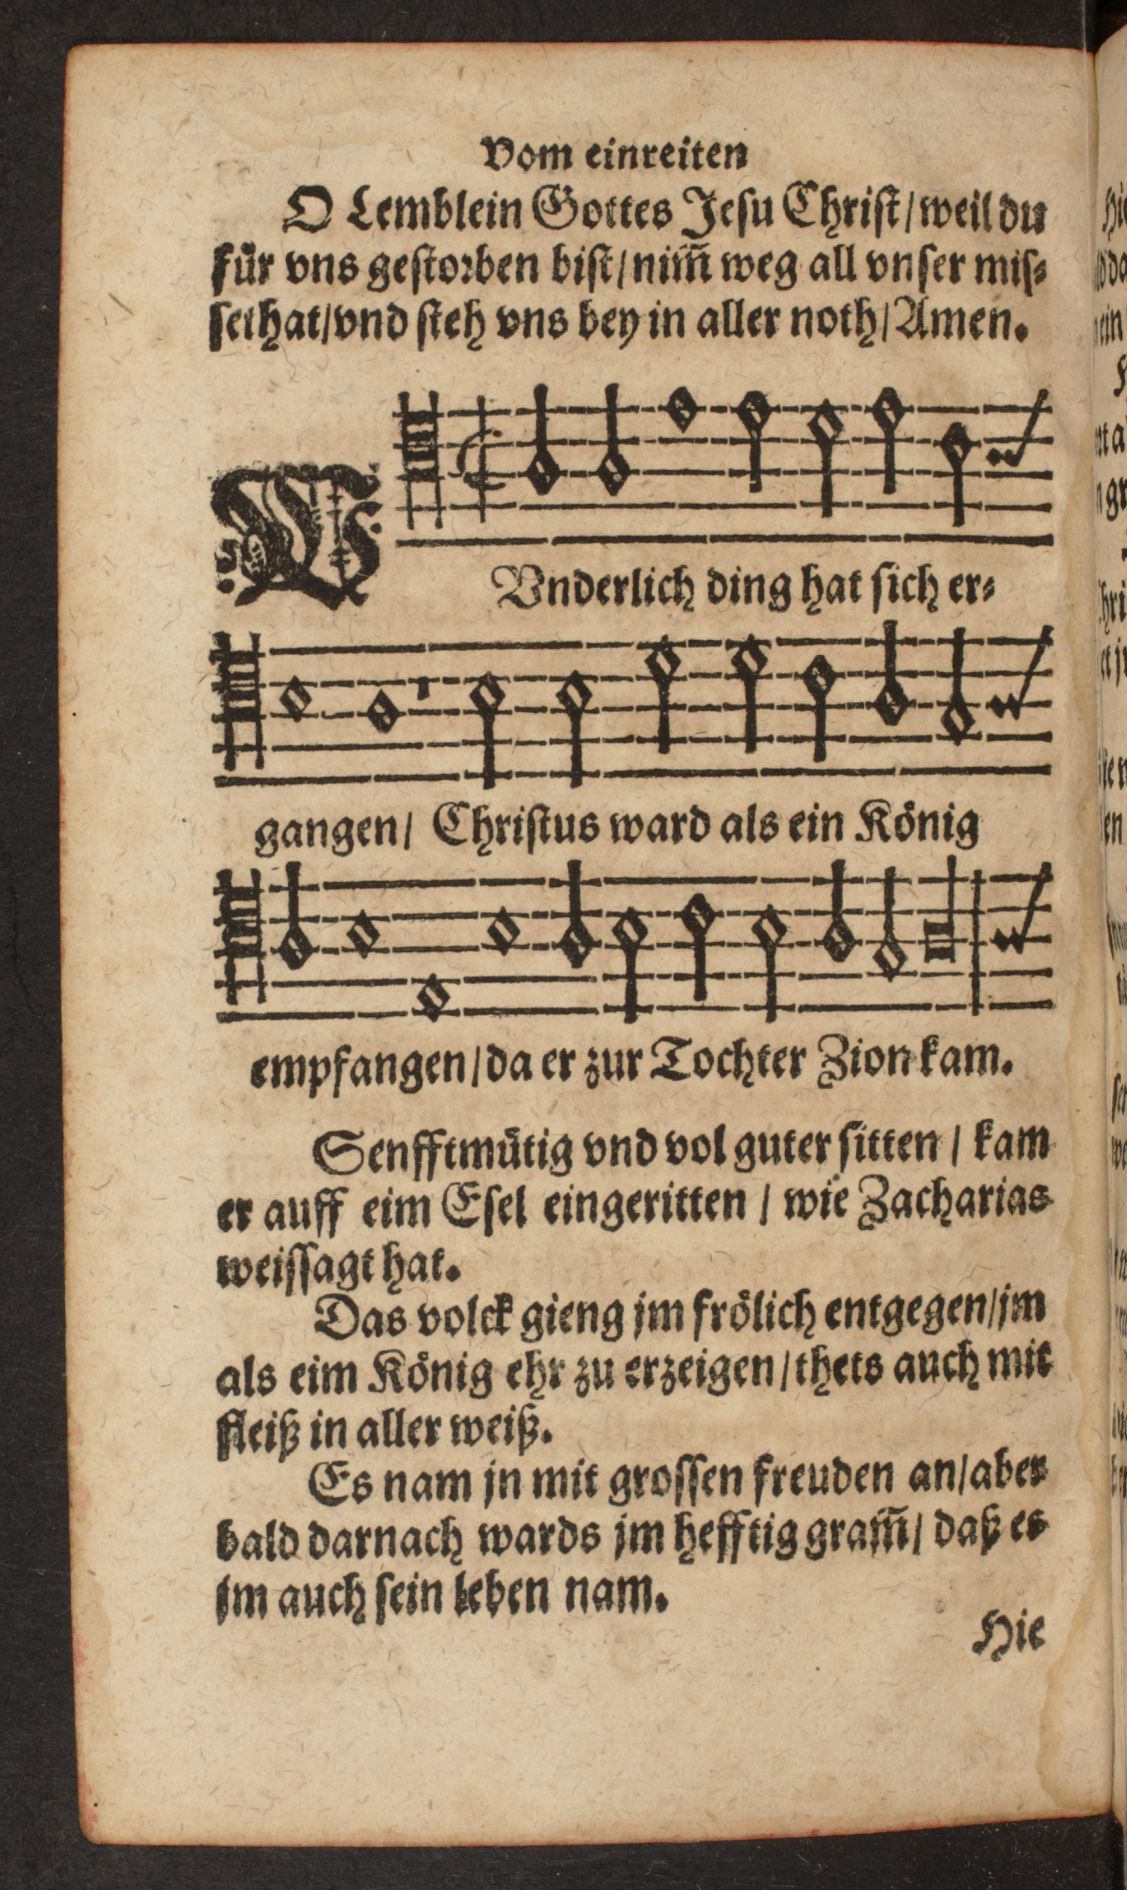 Vom einreiten
O Lemblein Gottes Jesu Christ/ weil du
für vns gestorben bist/ nim̅ weg all vnser mis⸗
sethat/ vnd steh vns bey in aller noth/ Amen.
WVnderlich ding hat sich er⸗
gangen/ Christus ward als ein König
empfangen/ da er zur Tochter Zion kam.
Senfftmütig vnd vol guter sitten / kam
er auff eim Esel eingeritten / wie Zacharias
weissagt hat.
Das volck gieng jm frölich entgegen/ jm
als eim König ehr zu erzeigen/ thets auch mit
fleiß in aller weiß.
Es nam jn mit grossen freuden an/ aber
bald darnach wards jm hefftig gram̅/ daß es
jm auch sein leben nam.
Hie